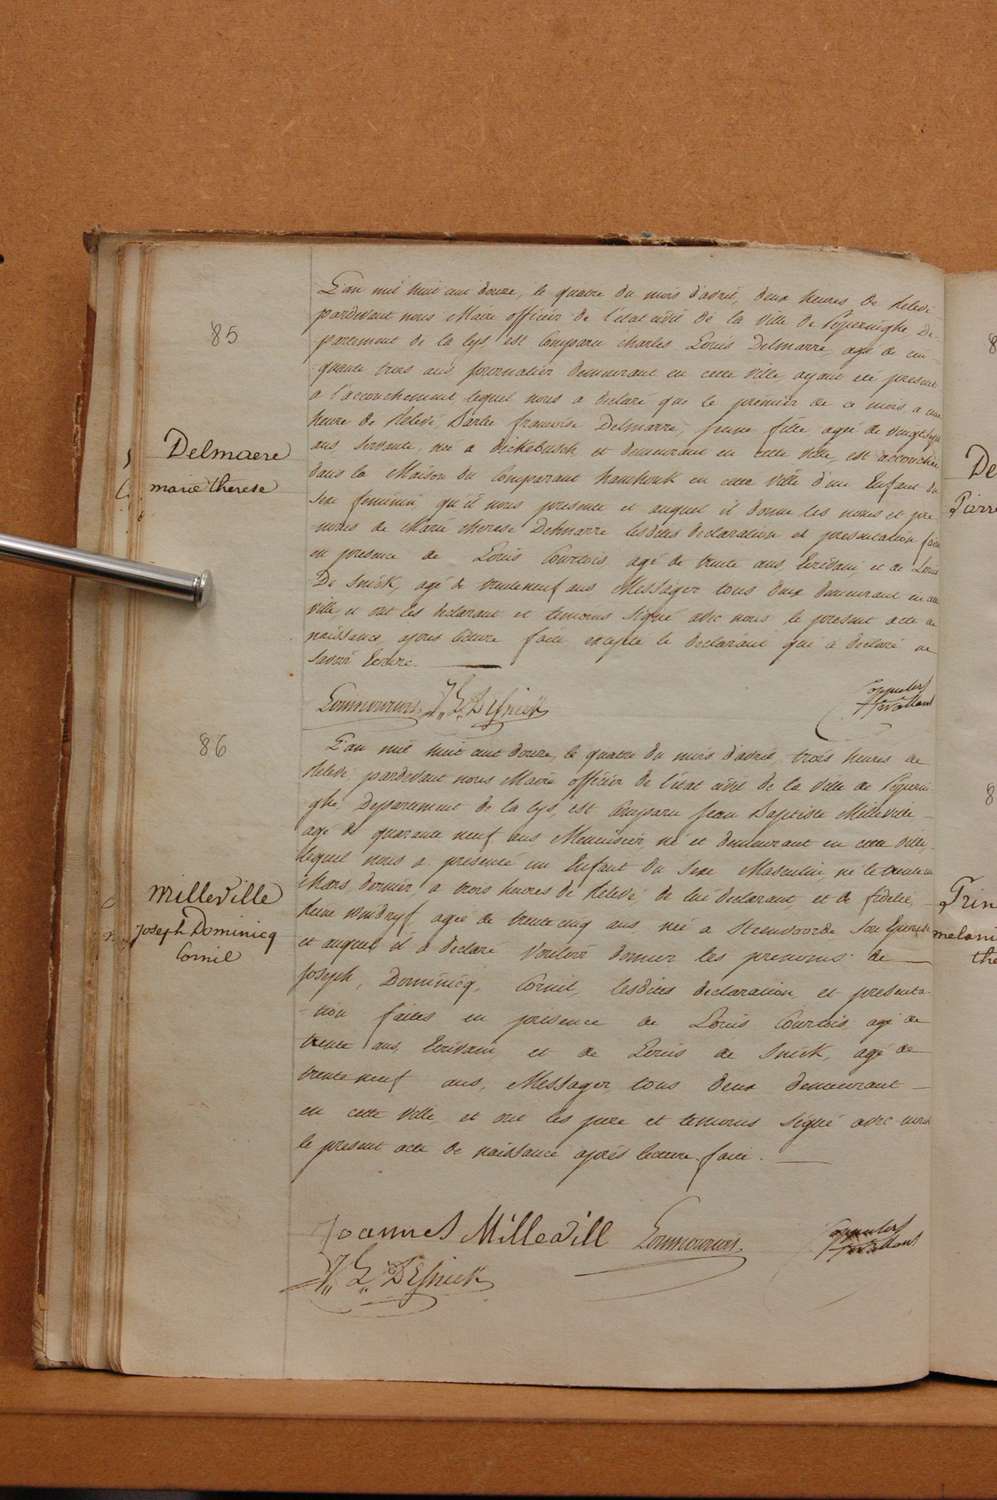 85
Delmaere
marie therese
L'an mil huit cent douze, le quatre du mois d'avril, deux heures de Relevé
pardevant nous Maire officier de l'état civil de la Ville de Poperinghe, De-
partement de la Lys est Comparu Charles Louis Delmarre, agé de cin
quante trois ans journalier demeurant en cette Ville ayant été present
a l'accouchement lequel nous a declaré que le premier de ce mois a une
heure de Relevé, Barbe francoise Delmarre, jeune fille agée de vingt
ans servante, née a Dickebusch et demeurant en cette Ville est accouchée
dans la Maison du Comparant en cette Ville d'une Enfant du
sexe feminin qu'il nous presente et auquel il donne les noms et pre
noms de Marie therese Delmarre lesdites declaration et presentation faites
en presence de Louis Courtois agé de trente ans Ecrivain et de Louis
De Snick, agé de trenteneuf ans Messager tous deux demeurant en cette
ville, et ont les declarant et temoins signé avec nous le present acte de
naissance, apres lecture faite excepté le declarant qui a declaré ne
savoir Ecrire.
L: DeSnick
86
Milleville
Joseph Dominicq
Cornil
L'an mil huit cent douze, le quatre du mois d'avril trois heures de
Relevé, pardevant nous Maire officier de l'état civil de la Ville de Poperin
ghe Departement de la Lys, est Comparu Jean Baptiste Milleville
agé de quarante neuf ans Menuisier né et demeurant en cette Ville
lequel nous a presenté un Enfant du Sexe Masculin, né le trente un
Mars dernier, a trois heures de Relevé, de lui declarant et de fidelle
agée de trente cinq ans née a Steenvoorde Son Epouse
et auquel il a declaré Vouloir donner les prenoms de
Joseph, Dominicq, Cornil, lesdites declaration et presenta-
-tion faites en presence de Louis Courtois agé de
trente ans, Ecrivain et de Louis de Snick, agé de
trente neuf ans, Messager tous deux demeurant
en cette Ville, et ont les pere et temoins signé avec nous
le present acte de naissance après lecture faite.
Joannes Millevill
L: DeSnick
De
Pierre
Trin
melani
the